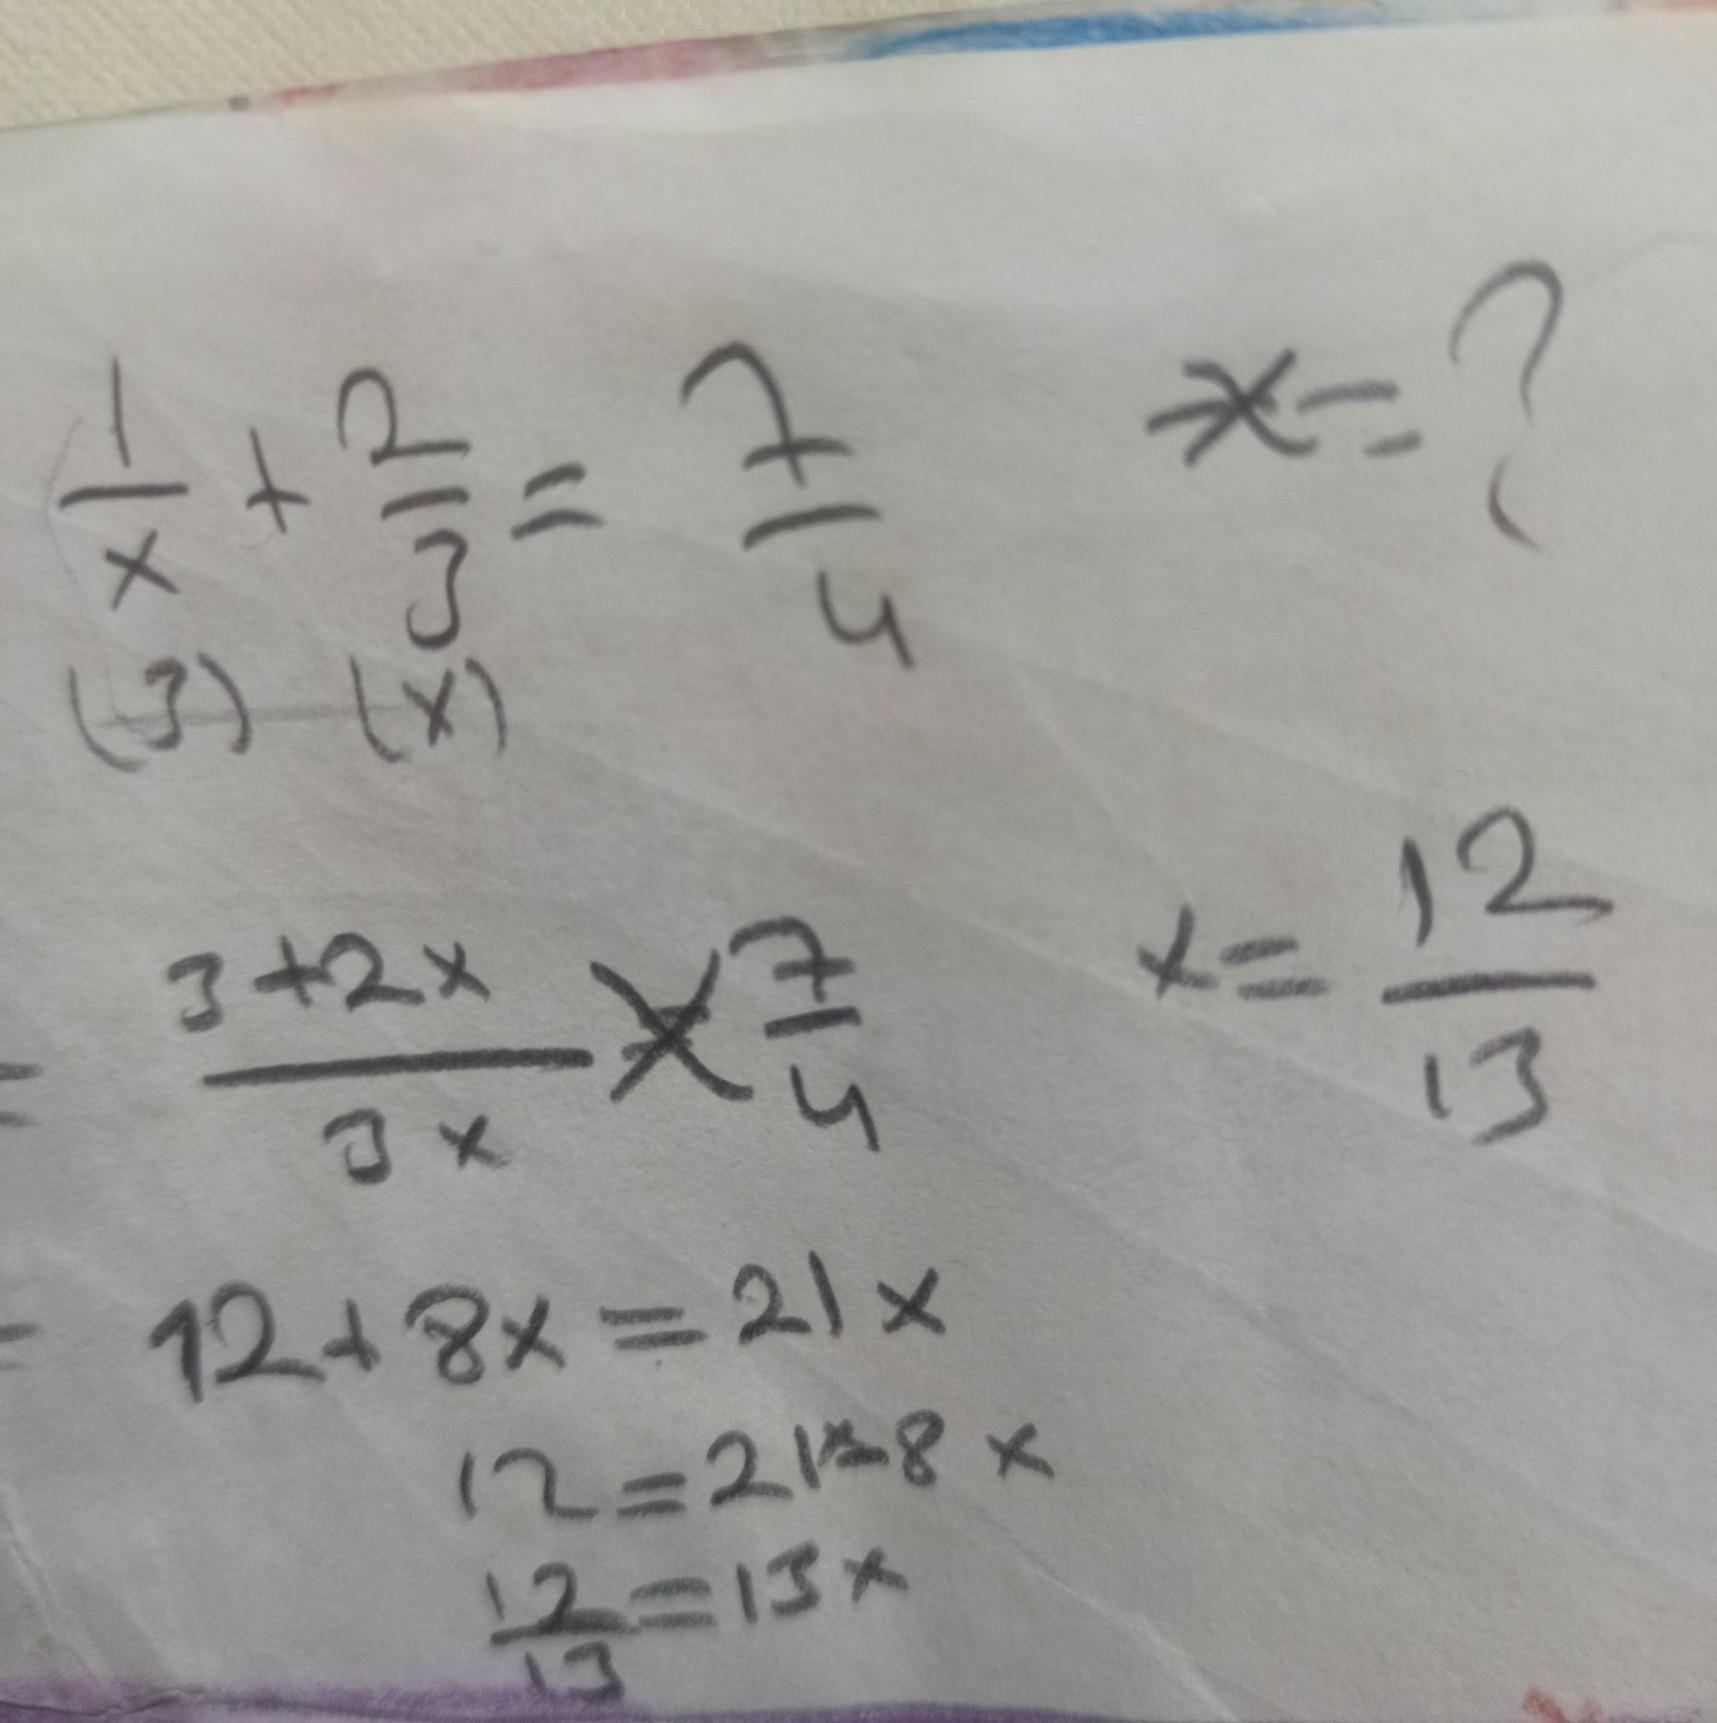 1/x + 2/3 = 7/4 x = ?
(3) (x)
= 3+2x/3x = 7/4 x = 12/13
= 12 + 8x = 21x
12 = 21x - 8x
12/13 = 13x